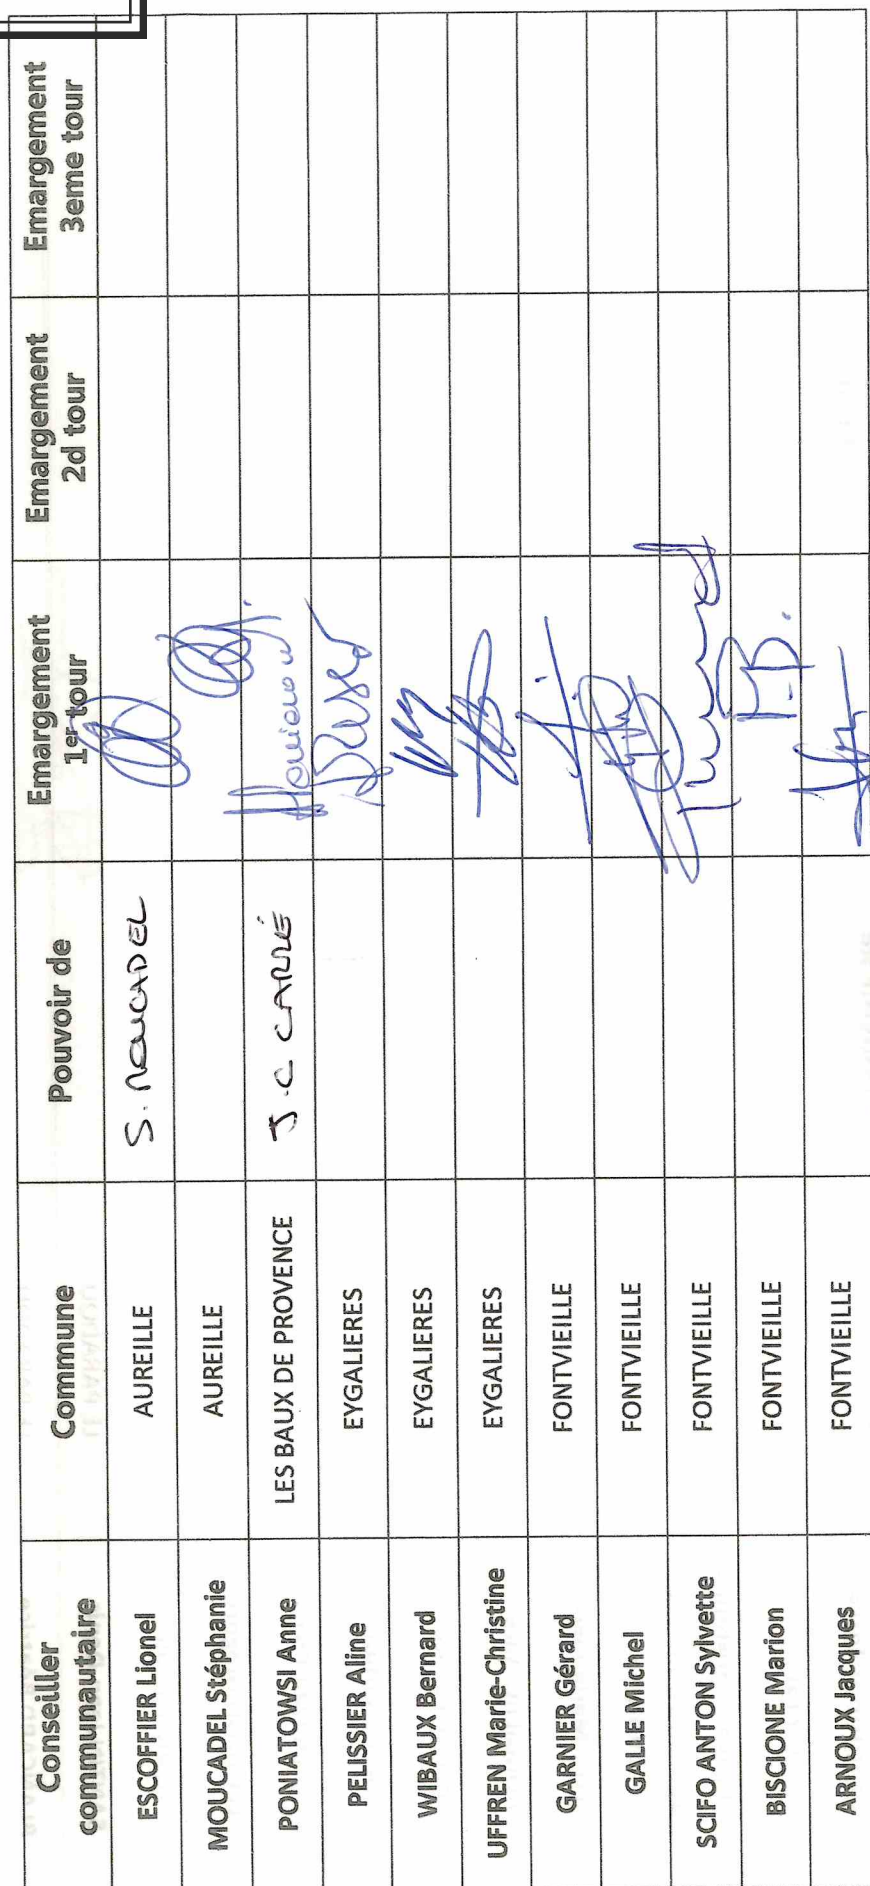 Conseiller communautaire Commune Pouvoir de Emargement 1er tour Emargement 2d tour Emargement 3eme tour
ESCOFFIER Lionel AUREILLE S. MOUCADEL
MOUCADEL Stéphanie AUREILLE
PONIATOWSI Anne LES BAUX DE PROVENCE J.C CARRÉ
PELISSIER Aline EYGALIERES
WIBAUX Bernard EYGALIERES
UFFREN Marie-Christine EYGALIERES
GARNIER Gérard FONTVIEILLE
GALLE Michel FONTVIEILLE
SCIFO ANTON Sylvette FONTVIEILLE
BISCIONE Marion FONTVIEILLE
ARNOUX Jacques FONTVIEILLE